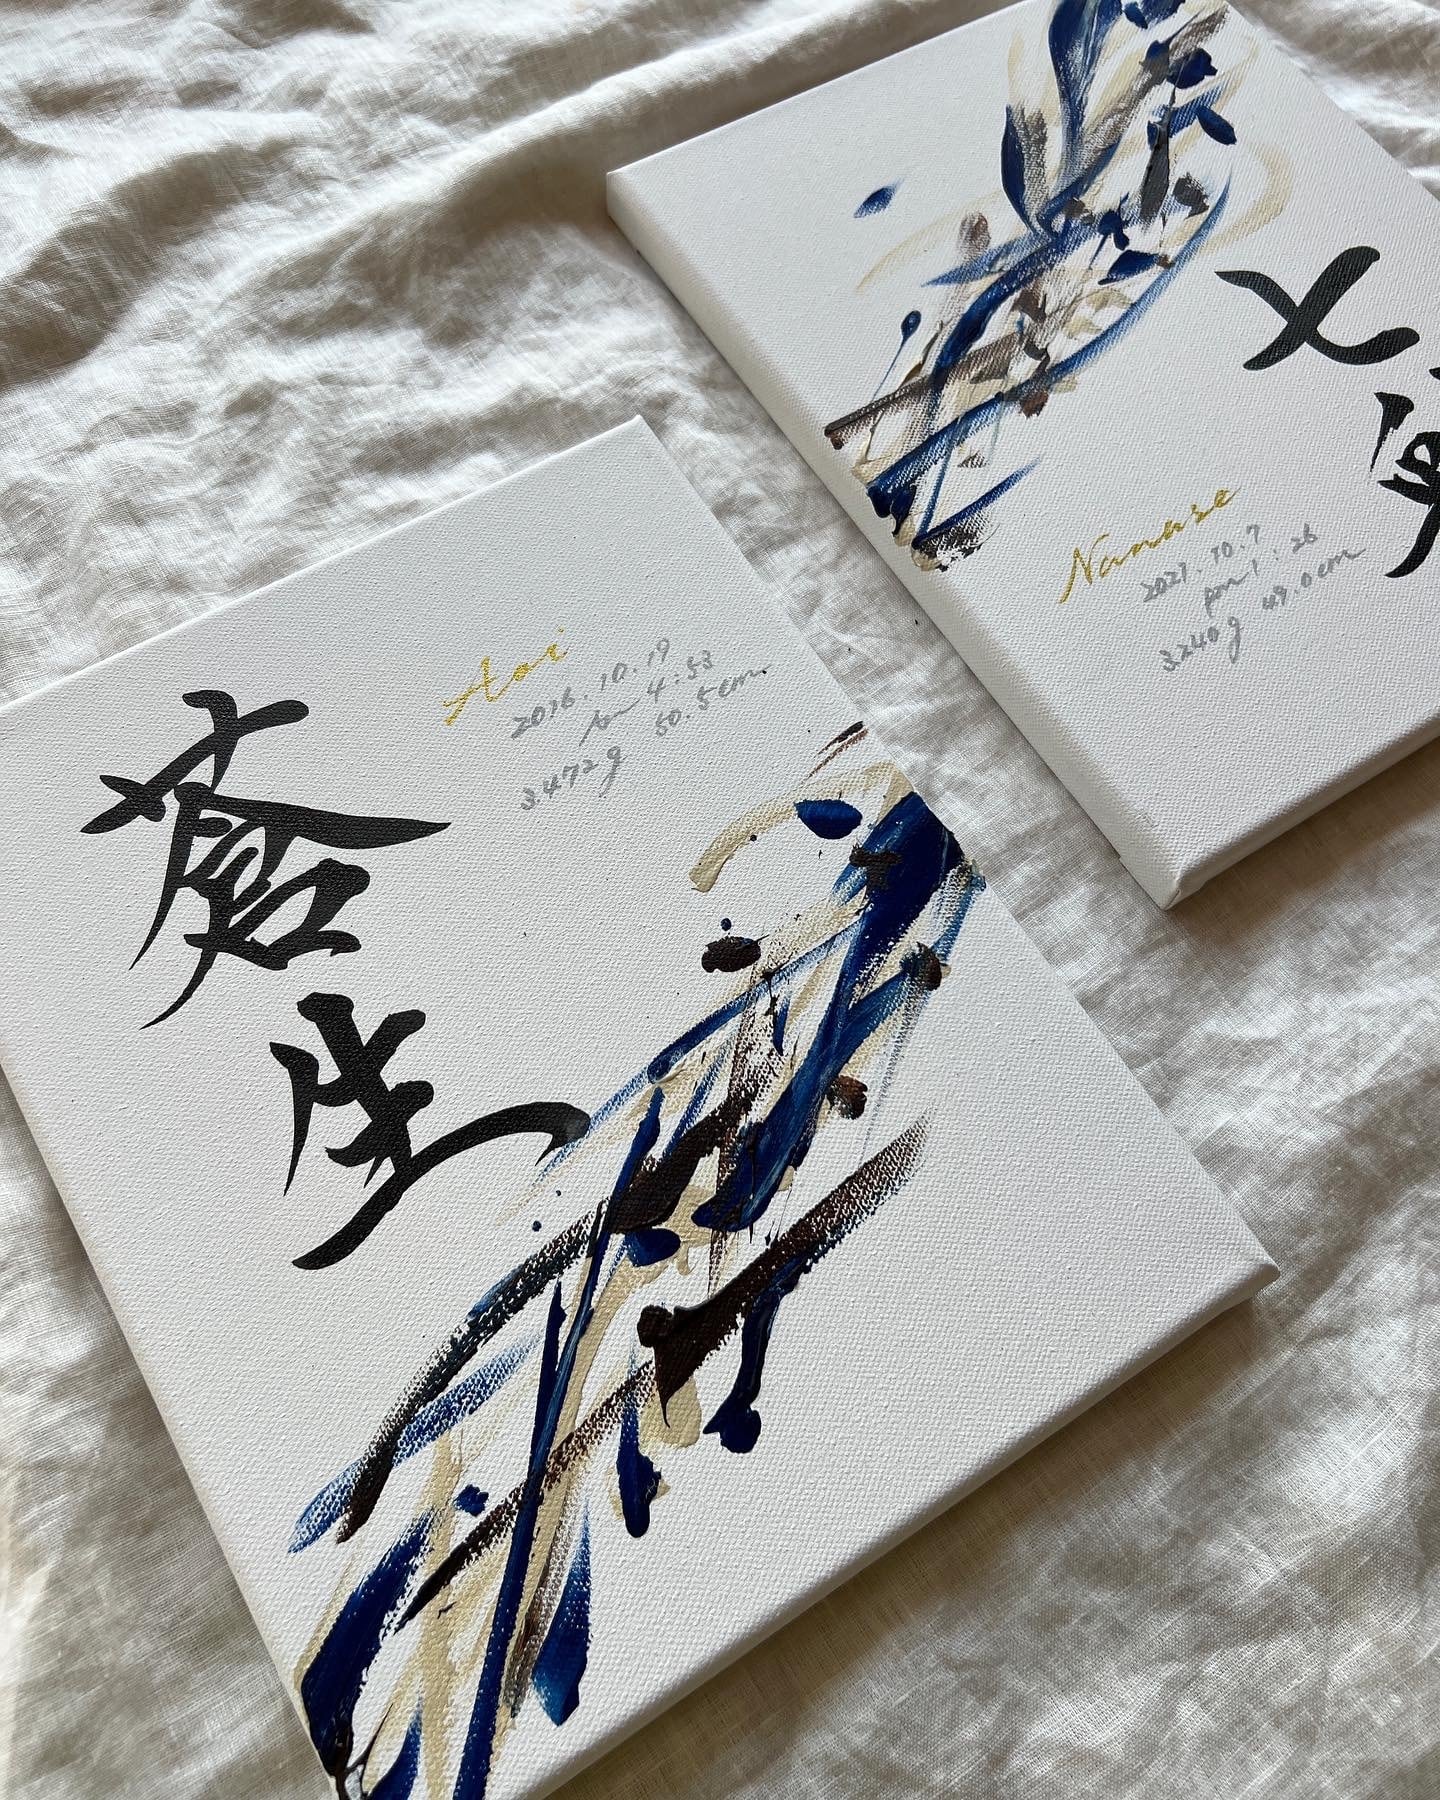 蒼生
Aoi
2016.10.19
am 4:53
3.472g 50.5cm
七
Nanase
2021.10.7
pm 1:26
3240g 49.0cm